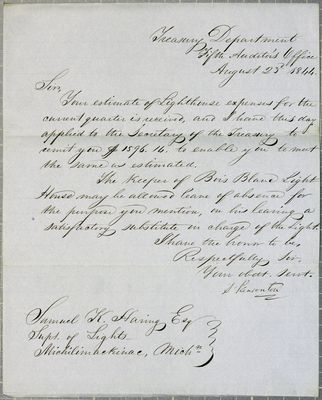 Treasury Department
Fifth Auditor's Office
August 23d 1844.
Sir,
Your estimate of Lighthouse expenses for the
current quarter is received, and I have this day
applied to the Secretary of the Treasury to
remit you $1596.16. to enable you to meet
the same as estimated.
The Keeper of Bois Blanc Light
House may be allowed leave of absence for
the purpose you mention, on his leaving a
satisfactory substitute in charge of the Light.
I have the honor to be,
Respectfully Sir,
Your obdt. Servt.
S. Pleasonton
Samuel K. Haring, Esq
Supt. of Lights
Michilimackinac, Michn